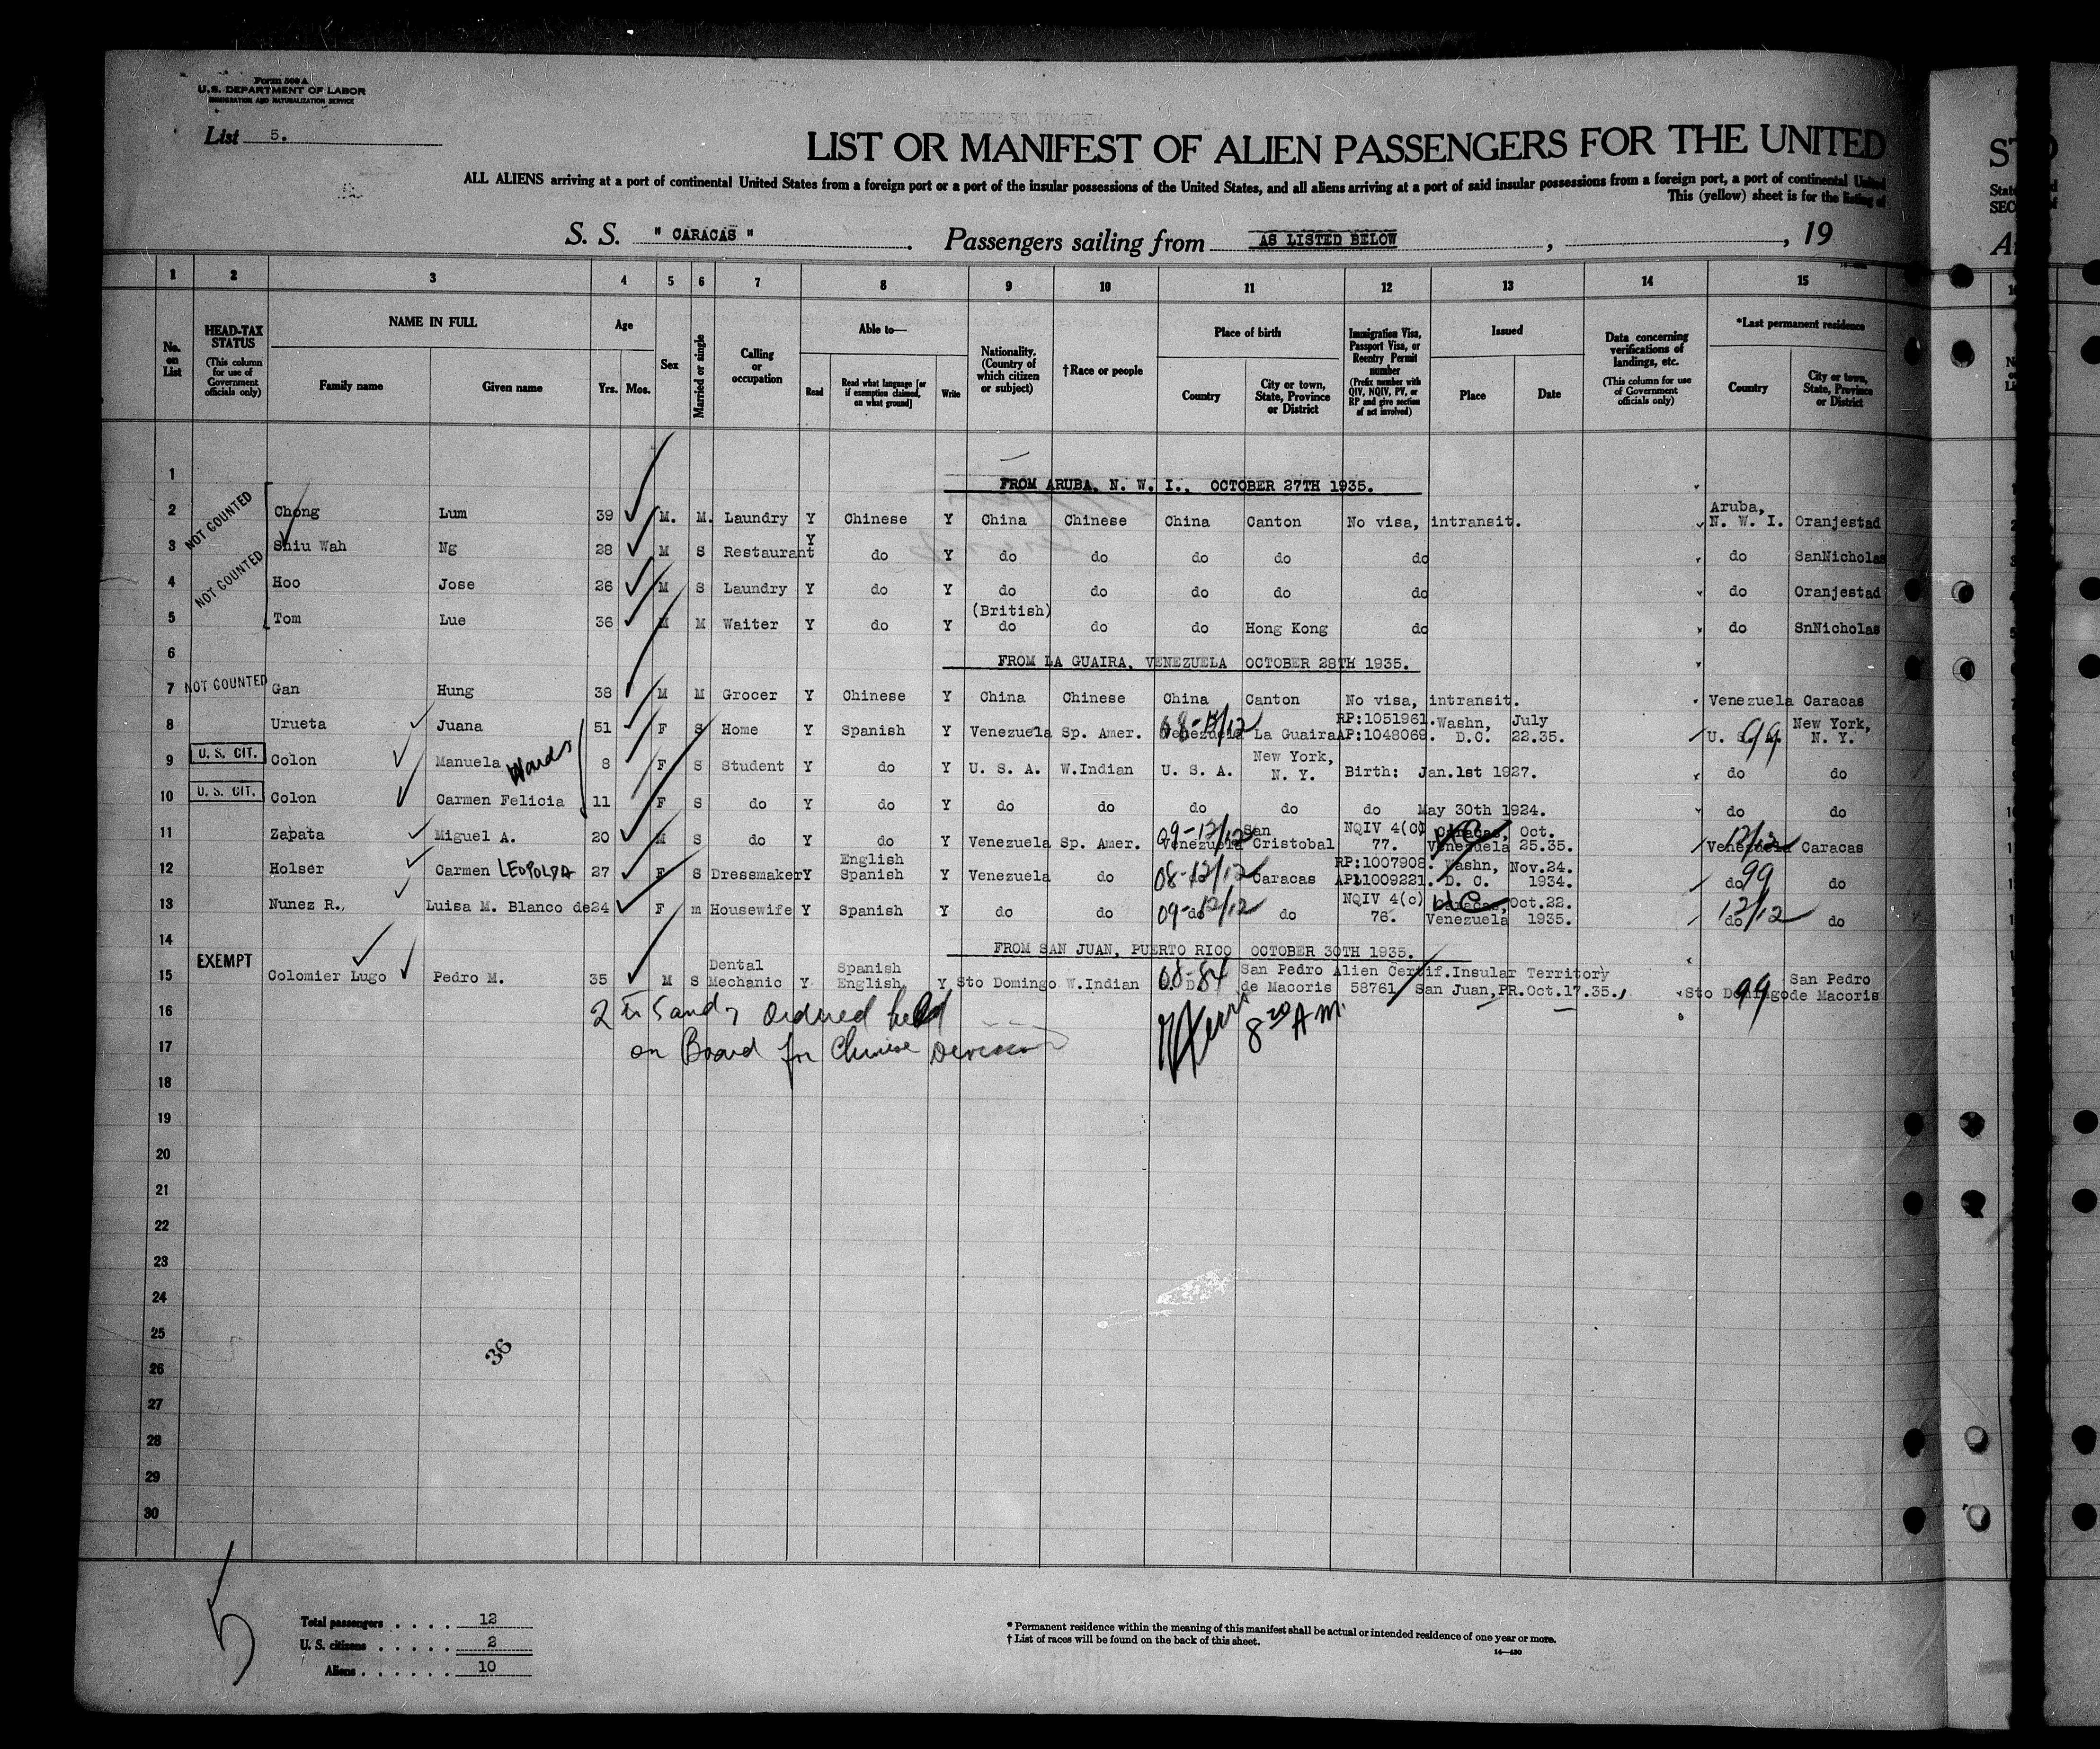 Form 500 A
U. S. DEPARTMENT OF LABOR
IMMIGRATION AND NATURALIZATION SERVICE
List 5.
LIST OR MANIFEST OF ALIEN PASSENGERS FOR THE UNITED
ALL ALIENS arriving at a port of continental United States from a foreign port or a port of the insular possessions of the United States, and all aliens arriving at a port of said insular possessions from a foreign port, a port of continental United
This (yellow) sheet is for the listing of
S. S. " CARACAS " . Passengers sailing from AS LISTED BELOW , , 19
1 2 3 4 5 6 7 8 9 10 11 12 13 14 15
No. on List
HEAD-TAX STATUS (This column for use of Government officials only)
NAME IN FULL Family name Given name
Age Yrs. Mos.
Sex
Married or single
Calling or occupation
Able to— Read Read what language [or if exemption claimed, on what ground] Write
Nationality. (Country of which citizen or subject)
†Race or people
Place of birth Country City or town, State, Province or District
Immigration Visa, Passport Visa, or Reentry Permit number (Prefix number with QIV, NQIV, PV, or RP and give section of act involved)
Issued Place Date
Data concerning verifications of landings, etc. (This column for use of Government officials only)
*Last permanent residence Country City or town, State, Province or District
1 FROM ARUBA, N. W. I., OCTOBER 27TH 1935.
2 NOT COUNTED Chong Lum 39 M. M. Laundry Y Chinese Y China Chinese China Canton No visa, intransit. Aruba, N. W. I. Oranjestad
3 Shiu Wah Ng 28 M S Restaurant Y do Y do do do do do do SanNicholas
4 NOT COUNTED Hoo Jose 26 M S Laundry Y do Y do do do do do do Oranjestad
5 Tom Lue 36 M M Waiter Y do Y (British) do do do Hong Kong do do SnNicholas
6 FROM LA GUAIRA, VENEZUELA OCTOBER 28TH 1935.
7 NOT COUNTED Gan Hung 38 M M Grocer Y Chinese Y China Chinese China Canton No visa, intransit. Venezuela Caracas
8 Urueta Juana 51 F S Home Y Spanish Y Venezuela Sp. Amer. Venezuela La Guaira RP:1051961. AP:1048069. Washn, D.C. July 22.35. U. S. A. 99 New York, N. Y.
9 U. S. CIT. Colon Manuela Wards 8 F S Student Y do Y U. S. A. W.Indian U. S. A. New York, N. Y. Birth: Jan.1st 1927. do do
10 U. S. CIT. Colon Carmen Felicia 11 F S do Y do Y do do do do do May 30th 1924. do do
11 Zapata Miguel A. 20 M S do Y do Y Venezuela Sp. Amer. 09-12/12 Venezuela San Cristobal NQIV 4(C) 77. Caracas, Venezuela Oct. 25.35. 12/12 Venezuela Caracas
12 Holser Carmen LEOPOLDA 27 F S Dressmaker Y English Spanish Y Venezuela do 08-12/12 Caracas RP:1007908. AP11009221. Washn, D. C. Nov.24. 1934. do 99 do
13 Nunez R., Luisa M. Blanco de 24 F m Housewife Y Spanish Y do do 09-12/12 do do NQIV 4(c) 76. Caracas, Venezuela Oct.22. 1935. 12/12 do do
14 FROM SAN JUAN, PUERTO RICO OCTOBER 30TH 1935.
15 EXEMPT Colomier Lugo Pedro M. 35 M S Dental Mechanic Y Spanish English Y Sto Domingo W.Indian 08-84 San Pedro de Macoris Alien Certif.Insular Territory 58761 San Juan,PR.Oct.17.35. Sto Domingo 99 San Pedro de Macoris
16 2 to 5 and 7 ordered held 8 30 A M.
17 on Board for Chinese Division
18
19
20
21
22
23
24
25
26
27
28
29
30
36
5
Total passengers . . . . 12
U. S. citizens . . . . . 2
Aliens . . . . . . 10
* Permanent residence within the meaning of this manifest shall be actual or intended residence of one year or more.
† List of races will be found on the back of this sheet.
14—430